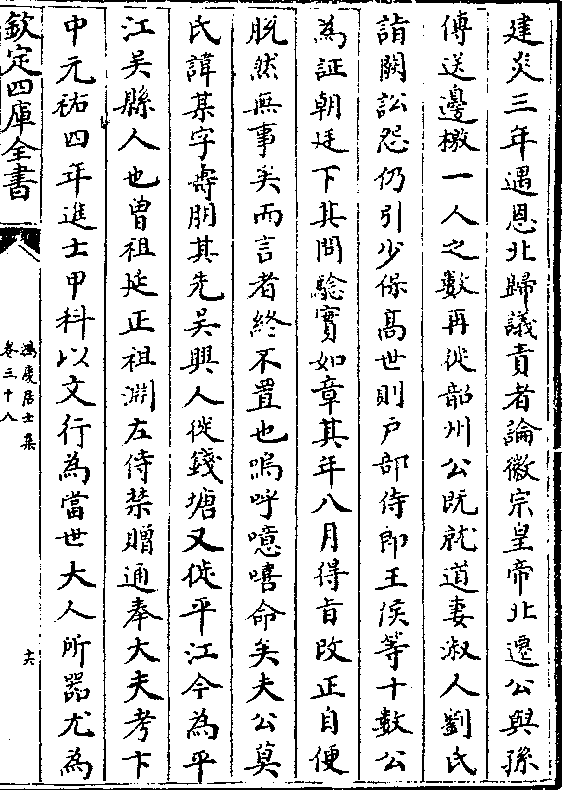 建炎三年遇恩北歸議責者論徽宗皇帝北遷公與孫
傅送邊檄一人之數再從韶州公既就道妻淑人劉氏
詣闕訟怨仍引少保髙世則戸部侍郎王俁等十數公
為証朝廷下其問驗實如章其年八月得㫖改正自便
脱然無事矣而言者終不置也嗚呼噫嘻命矣夫公莫
氏諱某字壽朋其先吳興人徙錢塘又徙平江今為平
江吳縣人也曾祖延正祖淵左侍禁贈通奉大夫考卞
中元祐四年進士甲科以文行為當世大人所器尤為
欽定四庫全書
鴻慶居士集
卷三十八
十六